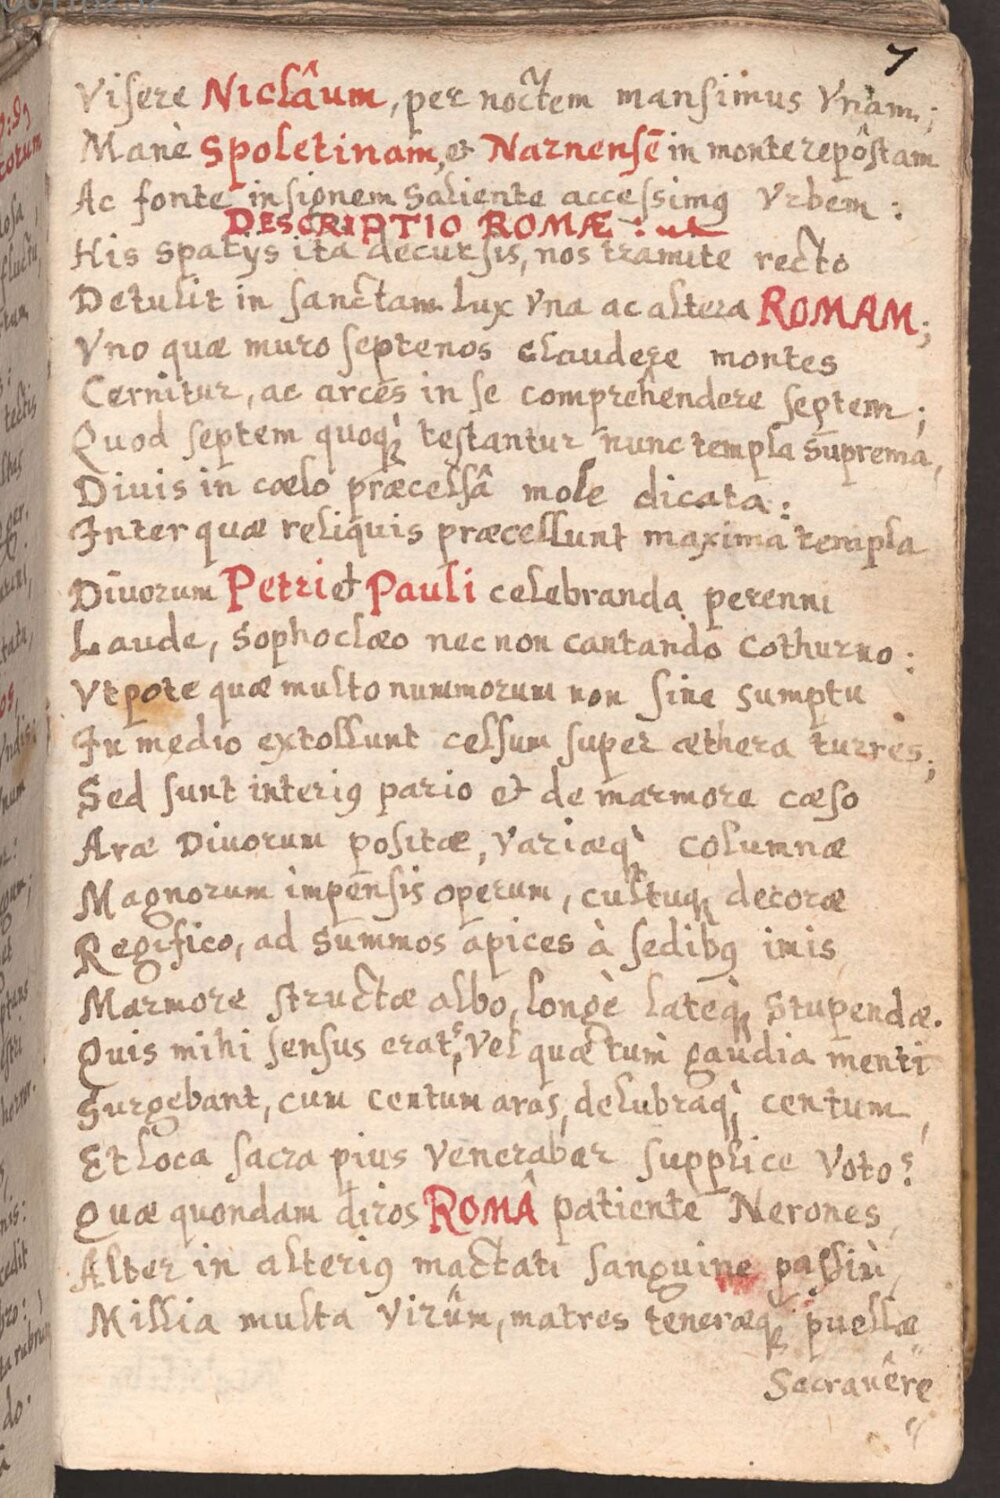 7
Visere Niclâum, per noctem mansimus Vnam;
Manè Spoletinam, et Narnensē in monte repôstam
Ac fonte insignem Saliente accessimꝰ Vrbem:
DESCRIPTIO ROMÆ:
His Spatijs ita decursis, nos tramite recto
Detulit in sanctam Lux Vna ac altera ROMAM;
Vno quæ muro septenos claudere montes
Cernitur, ac arces in se comprehendere septem;
Quod septem quoq; testantur nunc templa Suprema,
Diuis in cœlo præcelsâ mole dicata:
Inter quæ reliquis præcellunt maxima templa
Diuorum Petri et Pauli celebranda perenni
Laude, Sophoclæo nec non cantando Cothurno:
Vtpote quæ multo nummorum non sine Sumptu
In medio extollunt celsum super æthera turres;
Sed sunt interiꝰ pario et de marmore cæso
Aræ Diuorum positæ, Variæq; Columnæ
Magnorum impensis operum, cultuq; decoræ
Regifico, ad Summos apices à sedibꝰ imis
Marmore structæ albo, longè latèq; Stupendæ.
Quis mihi sensus erat? Vel quæ tum gaudia menti
Surgebant, cum centum aras, delubraq; centum,
Et loca sacra pius Venerabar supplice Voto?
Quæ quondam diros ROMÂ patiente Nerones
Alter in alteriꝰ mactati sanguine passim
Millia multa Virûm, matres teneræq; puellæ
Sacrauêre